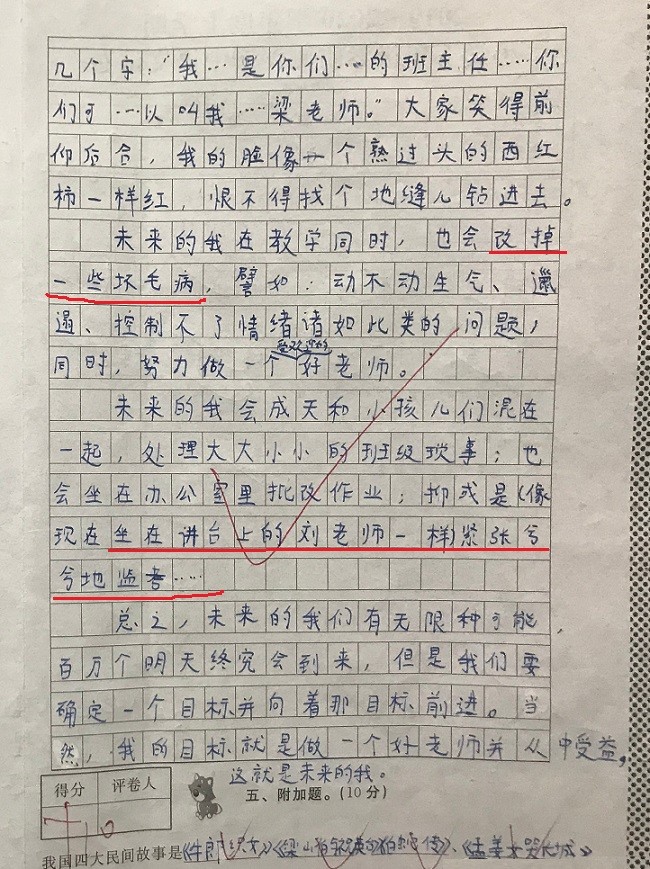 几个字：“我…是你们…的班主任……你
们可…以叫我……梁老师。”大家笑得前
仰后合，我的脸像一个熟过头的西红
柿一样红，恨不得找个地缝儿钻进去。
未来的我在教学同时，也会改掉
一些坏毛病，譬如：动不动生气、邋
遢、控制不了情绪诸如此类的问题，
受欢迎的
同时，努力做一个好老师。
未来的我会成天和小孩儿们混在
一起，处理大大小小的班级琐事；也
会坐在办公室里批改作业；抑或是（像
现在坐在讲台上的刘老师一样）紧张兮
兮地监考……
总之，未来的我们有无限种可能，
百万个明天终究会到来，但是我们要
确定一个目标并向着那目标前进。当
然，我的目标就是做一个好老师并从中受益，
这就是未来的我。
得分 评卷人
五、附加题。(10分)
我国四大民间故事是《牛郎织女》《梁山伯与祝英台》《白蛇传》、《孟姜女哭长城》